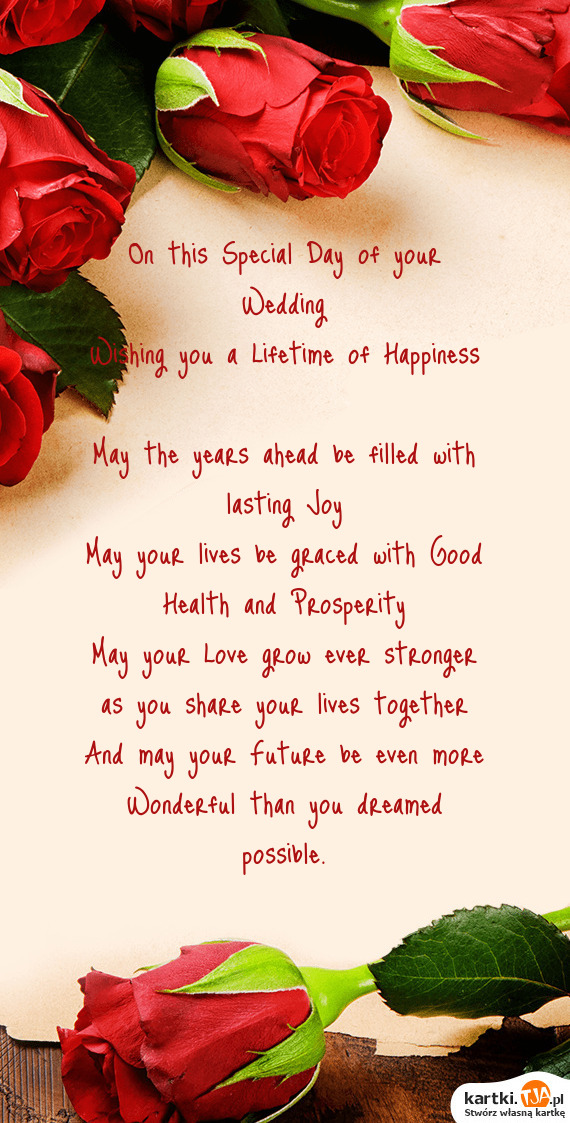 On this Special Day of your
Wedding
Wishing you a Lifetime of Happiness
May the years ahead be filled with
lasting Joy
May your lives be graced with Good
Health and Prosperity
May your Love grow ever stronger
as you share your lives together
And may your future be even more
Wonderful than you dreamed
possible.
kartki.TJA.pl
Stwórz własną kartkę